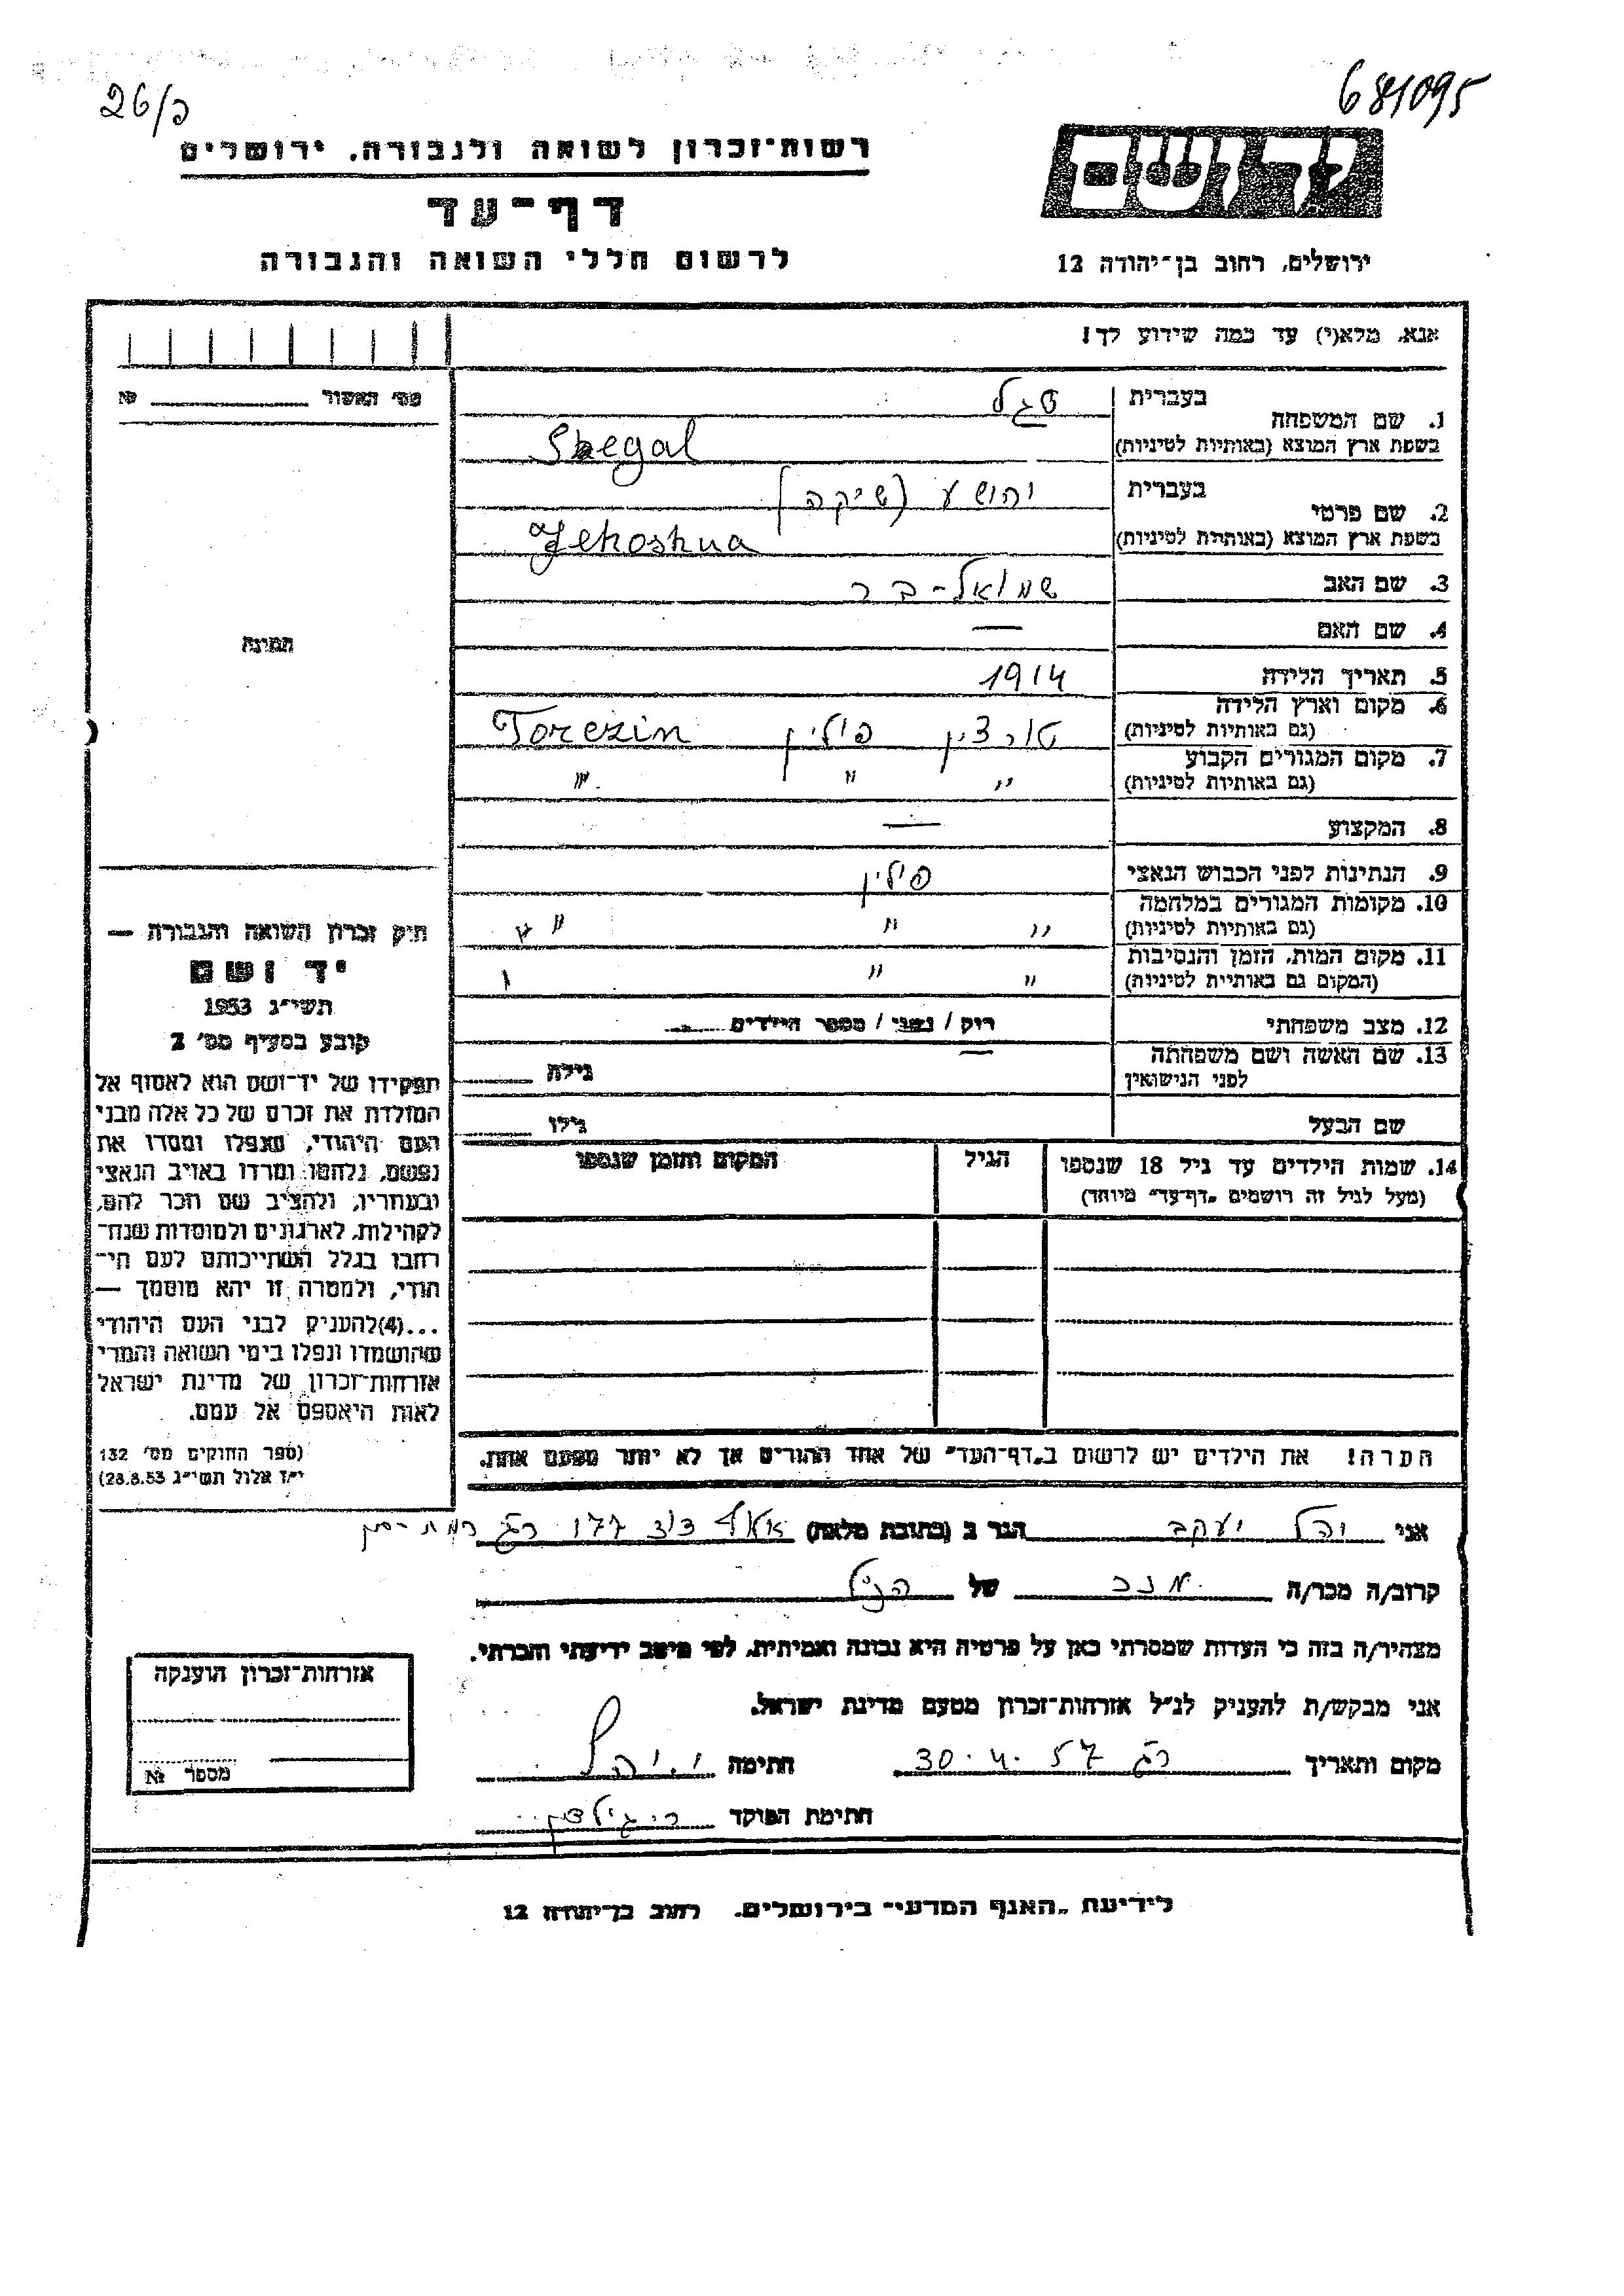 681095
26/כ
יד ושם
ירושלים, רחוב בן־יהודה 12
רשות־זכרון לשואה ולגבורה, ירושלים
דף־עד
לרשום חללי השואה והגבורה
אנא, מלא(י) עד כמה שידוע לך!
מס' האשור № 
1. שם המשפחה בעברית סגל
בשפת ארץ המוצא (באותיות לטיניות) Segal
2. שם פרטי בעברית יהושע (שיקה)
בשפת ארץ המוצא (באותיות לטיניות) Jehoshua
3. שם האב שמואל-בר
4. שם האם —
5. תאריך הלידה 1914
6. מקום וארץ הלידה (גם באותיות לטיניות) טורצין פולין Torezin
7. מקום המגורים הקבוע (גם באותיות לטיניות) " " "
8. המקצוע —
9. הנתינות לפני הכבוש הנאצי פולין
10. מקומות המגורים במלחמה (גם באותיות לטיניות) " " "
11. מקום המות, הזמן והנסיבות (המקום גם באותיות לטיניות) " " "
12. מצב משפחתי רוק / נשוי / מספר הילדים
13. שם האשה ושם משפחתה לפני הנישואין — גילה
שם הבעל גילו
14. שמות הילדים עד גיל 18 שנספו
(מעל לגיל זה רושמים „דף־עד" מיוחד)
הגיל
המקום והזמן שנספו
הערה! את הילדים יש לרשום ב„דף־העד" של אחד ההורים אך לא יותר מפעם אחת.
תמונה
חוק זכרון השואה והגבורה —
יד ושם
תשי"ג 1953
קובע בסעיף מס' 2
תפקידו של יד־ושם הוא לאסוף אל
המולדת את זכרם של כל אלה מבני
העם היהודי, שנפלו ומסרו את
נפשם, נלחמו ומרדו באויב הנאצי
ובעוזריו, ולהציב שם וזכר להם,
לקהילות, לארגונים ולמוסדות שנח־
רבו בגלל השתייכותם לעם הי־
הודי, ולמטרה זו יהא מוסמך —
...(4)להעניק לבני העם היהודי
שהושמדו ונפלו בימי השואה והמרי
אזרחות־זכרון של מדינת ישראל
לאות היאספם אל עמם.
(ספר החוקים מס' 132
י"ז אלול תשי"ג 28.8.53)
אני יהל יעקב הגר ב (כתובת מלאה) 177 רג רמת-גן
קרוב/ה מכר/ה מכר של הנ"ל
מצהיר/ה בזה כי העדות שמסרתי כאן על פרטיה היא נכונה ואמיתית, לפי מיטב ידיעתי והכרתי.
אני מבקש/ת להעניק לנ"ל אזרחות־זכרון מטעם מדינת ישראל.
מקום ותאריך רג 30.4.57 חתימה י. יהל
חתימת הפוקד
אזרחות־זכרון הוענקה
מספר №
לידיעת „האגף המדעי" בירושלים, רחוב בן־יהודה 12